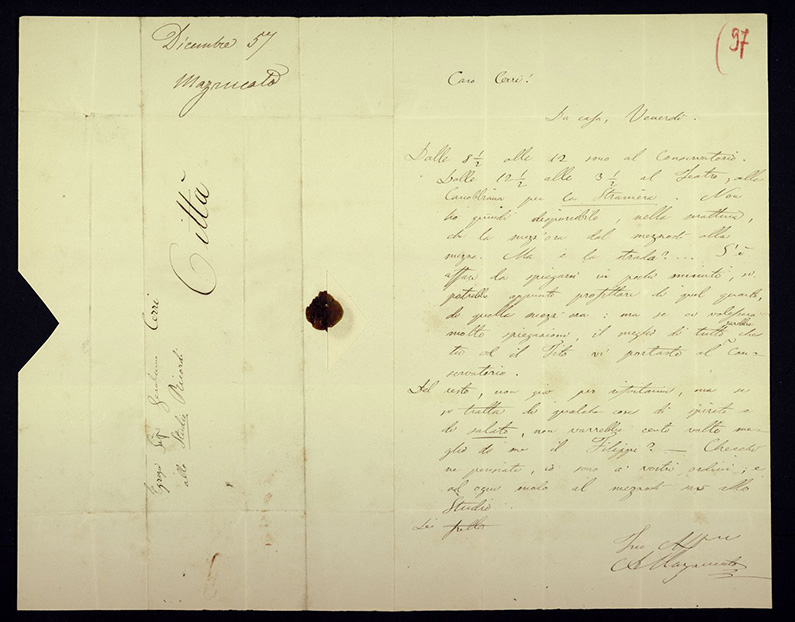 Dicembre 57
Mazzucato
Città
Egregio Sigr Geronimo Cerri
allo Studio Ricordi
97
Caro Cerri!
Da casa, Venerdì.
Dalle 8 1/2 alle 12 sono al Conservatorio.
Dalle 12 1/2 alle 3 1/2 al Teatro, alla
Canobbiana per la Straniera. Non
ho quindi disponibile, nella mattina,
che la mezz'ora dal mezzodì alla
mezza. Ma e la strada?... S'è
affare da spiegarsi in pochi minuti, si
potrebbe appunto profittare di quel quarto,
di quella mezz'ora: ma se ci
molte spiegazioni, il meglio di tutto sarebbe che
tu ed il Tito vi portaste al Con-
servatorio.
Del resto, non già per rifiutarmi, ma se
si tratta di qualche cosa di spirito e
di salato, non varrebbe cento volte me-
glio di me il Filippi? — Checchè
ne pensiate, io sono a' vostri ordini; e
ad ogni modo al mezzodì sarò allo
Studio.
Tuo
A Mazzucato